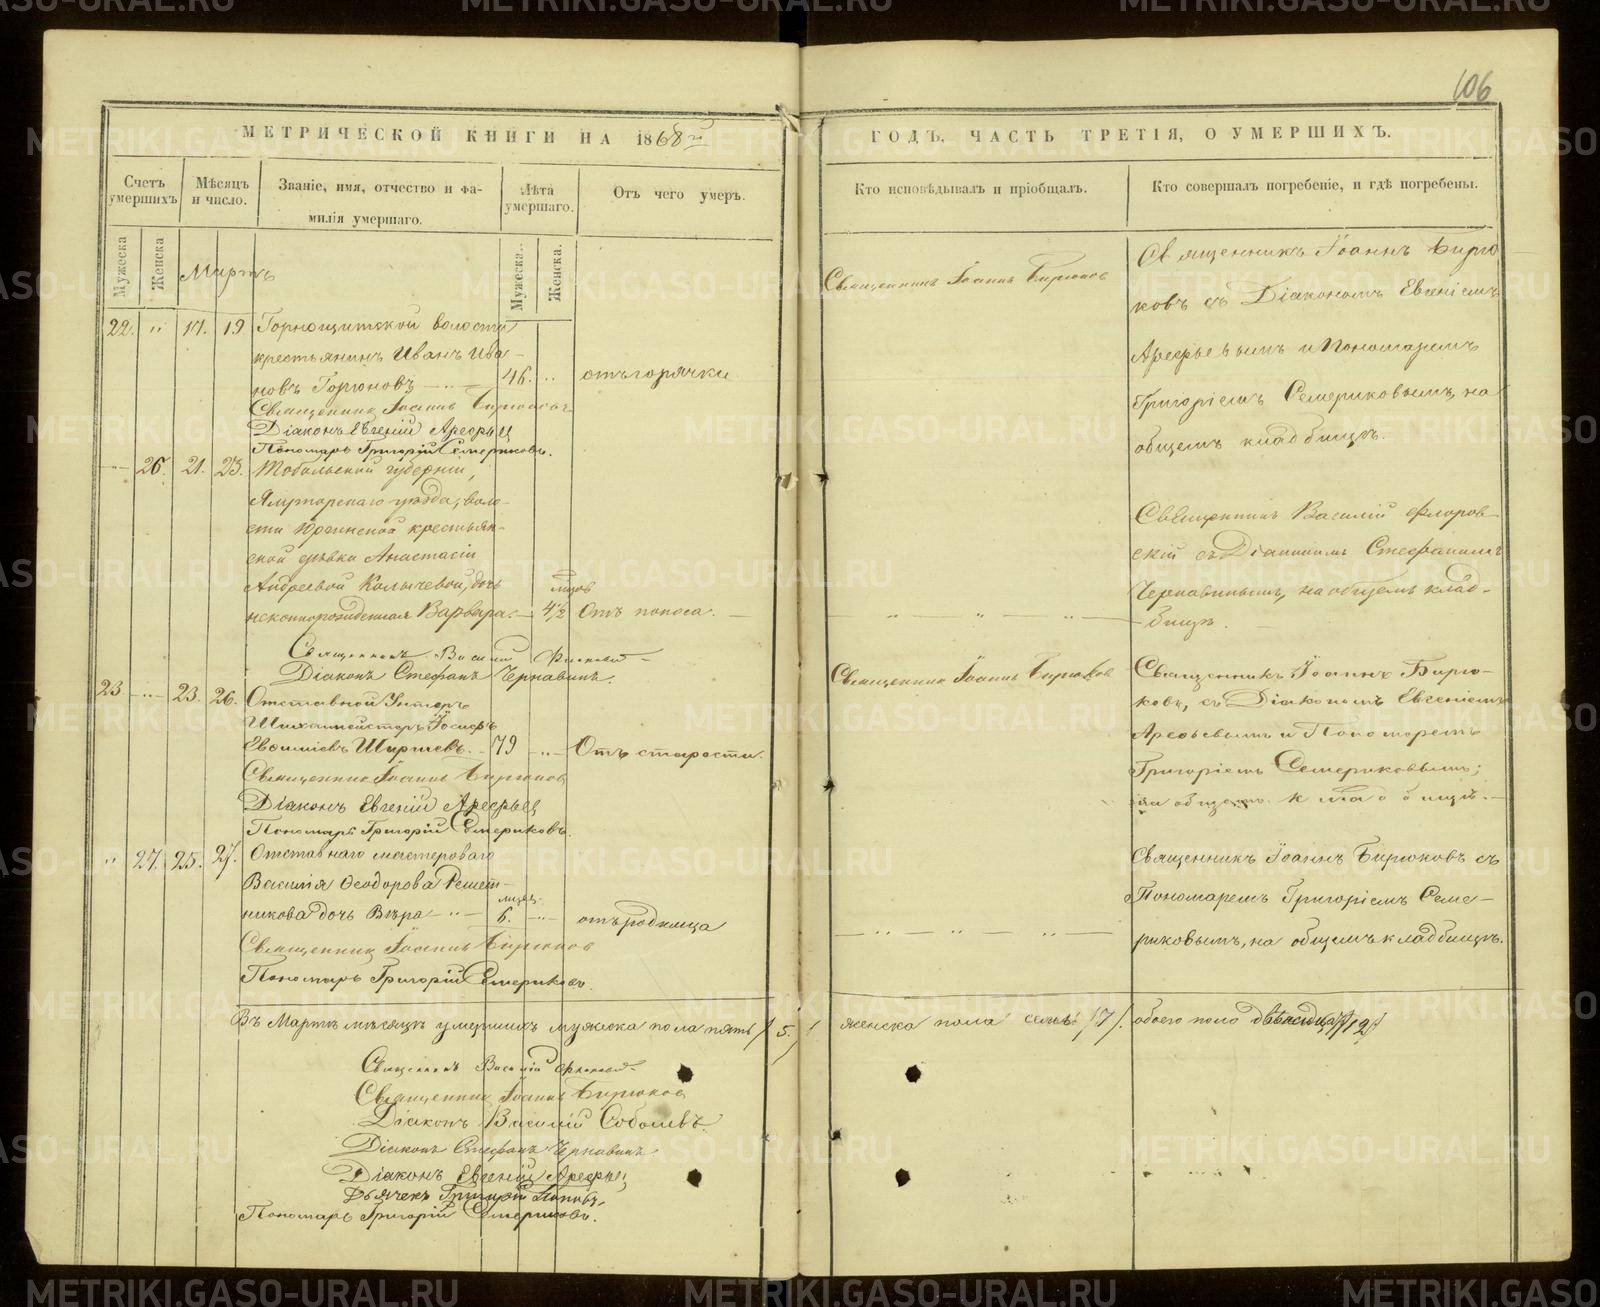 106
МЕТРИЧЕСКОЙ КНИГИ НА 1868й
Счетъ умершихъ
Мѣсяцъ и число.
Званіе, имя, отчество и фа-
милія умершаго.
Лѣта умершаго.
Отъ чего умеръ.
Мужеска
Женска
Мужеска.
Женска.
Мартъ
22. " 17. 19 Горнощитской волости
крестьянинъ Иванъ Ива-
новъ Горюновъ 46. " отъ горячки
Священникъ Іоаннъ Бирюковъ
Діаконъ Евгеній Арефьев
Пономарь Григорій Семериковъ.
" 26. 21. 23. Тобольской губерніи,
Ялуторскаго уѣзда, воло-
сти Юргинской крестьян-
ской дѣвки Анастасіи
Андреевой Колычевой, дочь
незаконнорожденная Варвара. мѣсяц 4½ Отъ поноса.
Священникъ Василій
Діаконъ Стефанъ Чернавинъ.
23 " 23. 26. Отставной Унтеръ
Шихтмейстеръ Іосифъ
Ширшевъ. 79 " Отъ старости.
Священникъ Іоаннъ Бирюков
Діаконъ Евгеній Арефьев
Пономарь Григорій Семериковъ.
" 27. 25. 27. Отставнаго мастероваго
Василія Ѳеодорова Решет-
никова дочь Вѣра 6. " отъ родимца
Священникъ Іоаннъ Бирюков
Пономарь Григорій Семериковъ.
Въ Мартѣ мѣсяцѣ умершихъ мужеска пола пять /5/
Священникъ Василій
Священникъ Іоаннъ Бирюков
Діаконъ Василій Соболевъ.
Діаконъ Стефанъ Чернавинъ
Діаконъ Евгеній Арефьев
Дьячекъ Григорій Поповъ.
Пономарь Григорій Семериковъ.
ГОДЪ, ЧАСТЬ ТРЕТІЯ, О УМЕРШИХЪ.
Кто исповѣдывалъ и пріобщалъ.
Кто совершалъ погребеніе, и гдѣ погребены.
Священникъ Іоаннъ Бирюковъ
Священникъ Іоаннъ Бирю
ковъ съ Діакономъ Евгеніемъ
Арефьевымъ и Пономаремъ
Григоріемъ Семериковымъ, на
общемъ кладбищѣ.
Священникъ Василій Флоров-
скій съ Діакономъ Стефаномъ
Чернавинымъ, на общемъ клад-
бищѣ.
Священникъ Іоаннъ Бирюков
Священникъ Іоаннъ Бирю-
ковъ, съ Діакономъ Евгеніемъ
Арефьевымъ и Пономаремъ
Григоріемъ Семериковымъ;
на общемъ кладбищѣ.
Священникъ Іоаннъ Бирюковъ съ
Пономаремъ Григоріемъ Семе-
риковымъ, на общемъ кладбищѣ.
женска пола семь /7/. обоего пола двенадцать /12/
METRIKI.GASO-URAL.RU